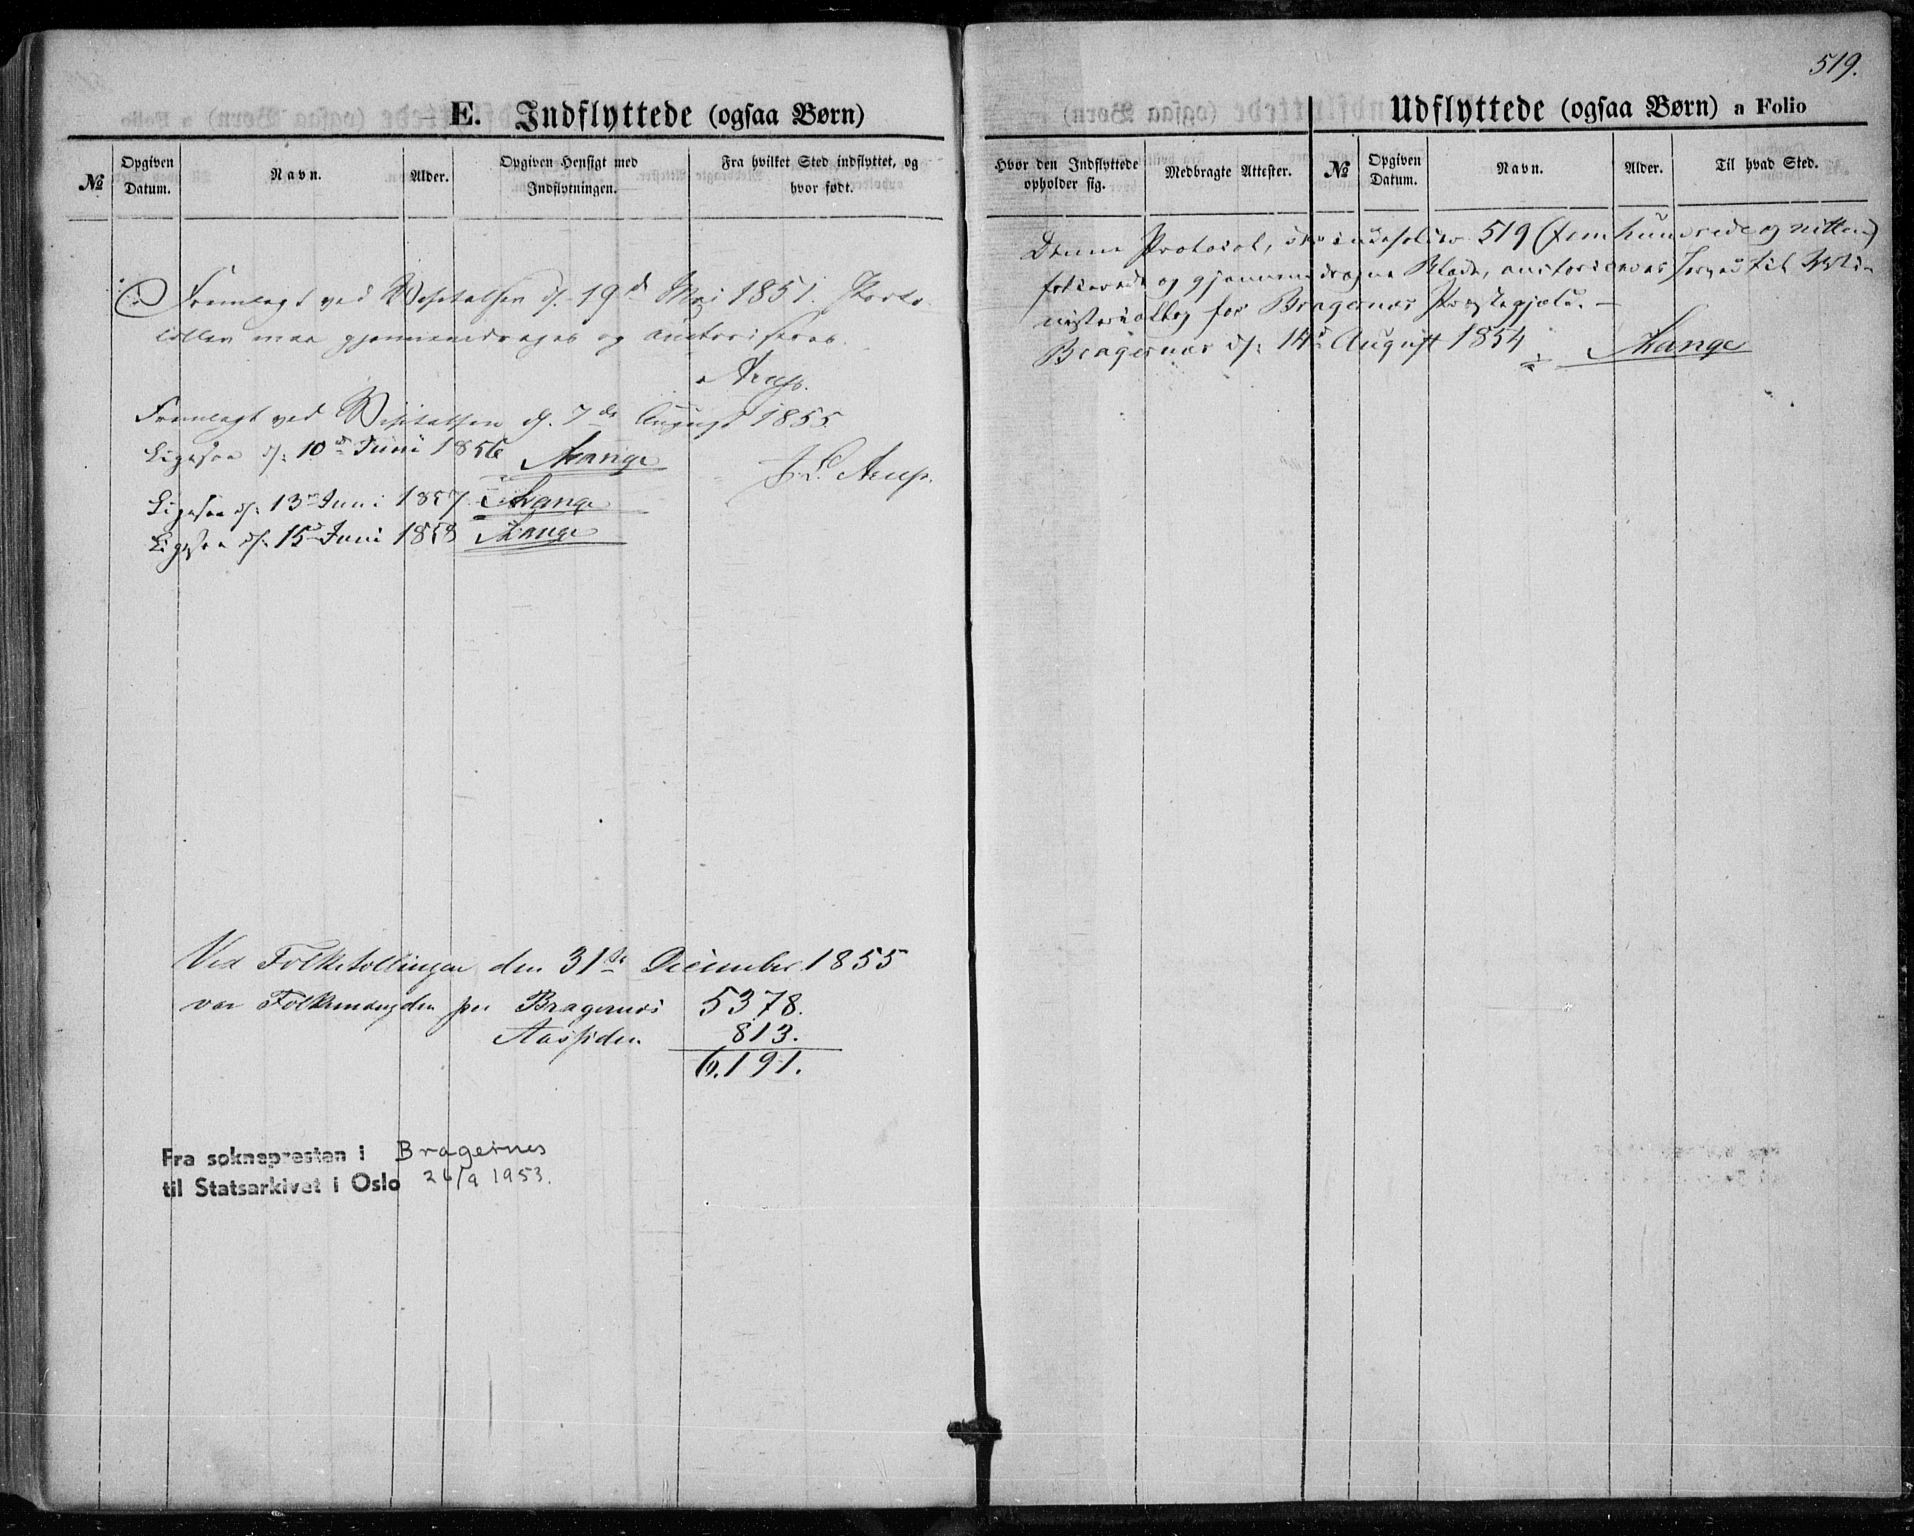 E. Indflyttede (ogsaa Børn)
№
Opgiven Datum.
Navn.
Alder.
Opgiven Hensigt med Indflytningen.
Fra hvilket Sted indflyttet, og hvor født.
Fremlagt ved Visitatsen d. 19d Mai 1851. Proto-
collen maa gjennemdrages og autoriseres.
Arup.
Fremlagt ved Visitatsen d. 7de August 1855.
J. L. Arup.
Ligesaa d: 10d Juni 1856
Ligesaa d: 13d Juni 1857.
Ligesaa d: 15d Juni 1858
Ved Folketællingen den 31te December 1855
var Folkemængden for Bragernes 5378.
Aassiden 813.
6.191.
Fra soknepresten i Bragernes
til Statsarkivet i Oslo 26/9 1953.
519.
Udflyttede (ogsaa Børn) a Folio
Hvor den Indflyttede opholder sig.
Medbragte Attester.
№
Opgiven Datum.
Navn.
Alder.
Til hvad Sted.
Denne Protocol, 519 (fem hundrede og nitten)
folierede og gjennemdragne Blade, autoriseres herved til Mi-
nisterialbog for Bragernes Præstegjeld. —
Bragernes d: 14d August 1854